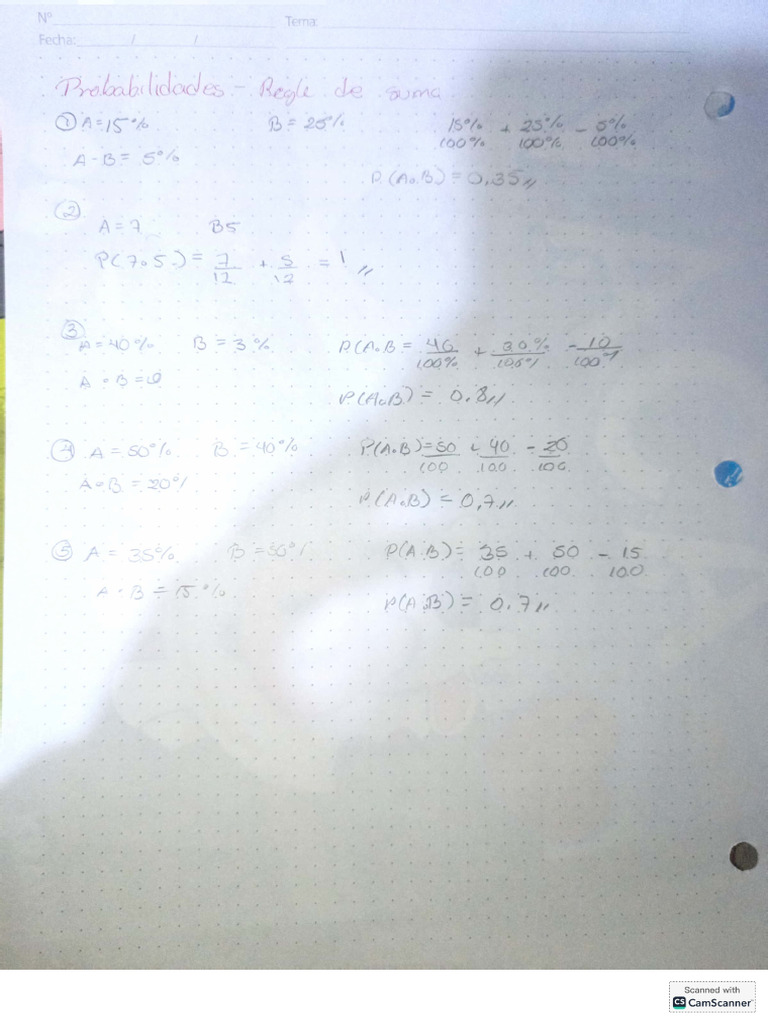 Nº Tema:
Fecha: / /
Probabilidades - Regle de suma
① A=15% B = 25% 15%/100% + 25%/100% - 5%/100%
A-B = 5%
P(AoB) = 0,35
②
A = 7 B5
P(7o5) = 7/12 + 5/12 = 1
③
A = 40% B = 3% P(AoB = 40/100% + 30%/100% - 10/100%
A o B =
P(AoB) = 0.8
④ A = 50% B = 40% P(AoB) = 50/100 + 40/100 - 20/100
A o B = 20%
P(AoB) = 0,7
⑤ A = 35% B = 50% P(A.B) = 35/100 + 50/100 - 15/100
A · B = 15%
P(AoB) = 0.7
Scanned with
CS CamScanner